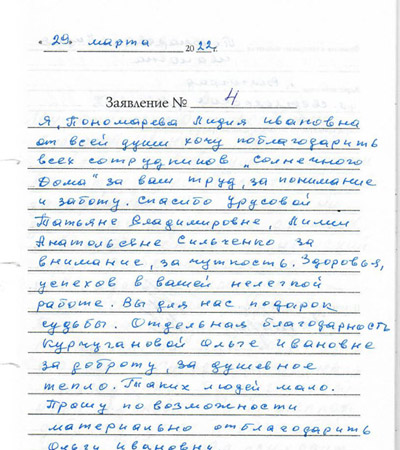 «29» марта 2022 г.
Заявление № 4
Я, Пономарева Лидия Ивановна
от всей души хочу поблагодарить
всех сотрудников „Солнечного
Дома" за ваш труд, за понимание
и заботу. Спасибо Урусовой
Татьяне Владимировне, Лилии
Анатольевне Сильченко за
внимание, за чуткость. Здоровья,
успехов в вашей нелегкой
работе. Вы для нас подарок
судьбы. Отдельная благодарность
Курчугановой Ольге Ивановне
за доброту, за душевное
тепло. Таких людей мало.
Прошу по возможности
материально отблагодарить
Ольги Ивановну